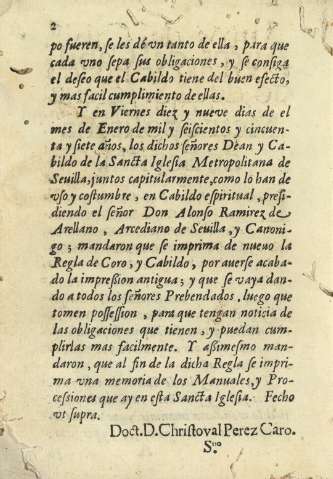 2
po fueren, se les dè vn tanto de ella, para que
cada vno sepa sus obligaciones, y se consiga
el deseo que el Cabildo tiene del buen efecto,
y mas facil cumplimiento de ellas.
Y en Viernes diez y nueve dias de el
mes de Enero de mil y seiscientos y cincuen-
ta y siete años, los dichos señores Dean y Ca-
bildo de la Sancta Iglesia Metropolitana de
Sevilla, juntos capitularmente, como lo han de
vso y costumbre, en Cabildo espiritual, presi-
diendo el señor Don Alonso Ramirez de
Arellano, Arcediano de Sevilla, y Canoni-
go; mandaron que se imprima de nuevo la
Regla de Coro, y Cabildo, por auerse acaba-
do la impression antigua; y que se vaya dan-
do a todos los señores Prebendados, luego que
tomen possession, para que tengan noticia de
las obligaciones que tienen, y puedan cum-
plirlas mas facilmente. Y assimesmo man-
daron, que al fin de la dicha Regla se impri-
ma vna memoria de los Manuales, y Pro-
cessiones que ay en esta Sancta Iglesia. Fecho
vt supra.
Doct. D. Christoval Perez Caro.
S.no